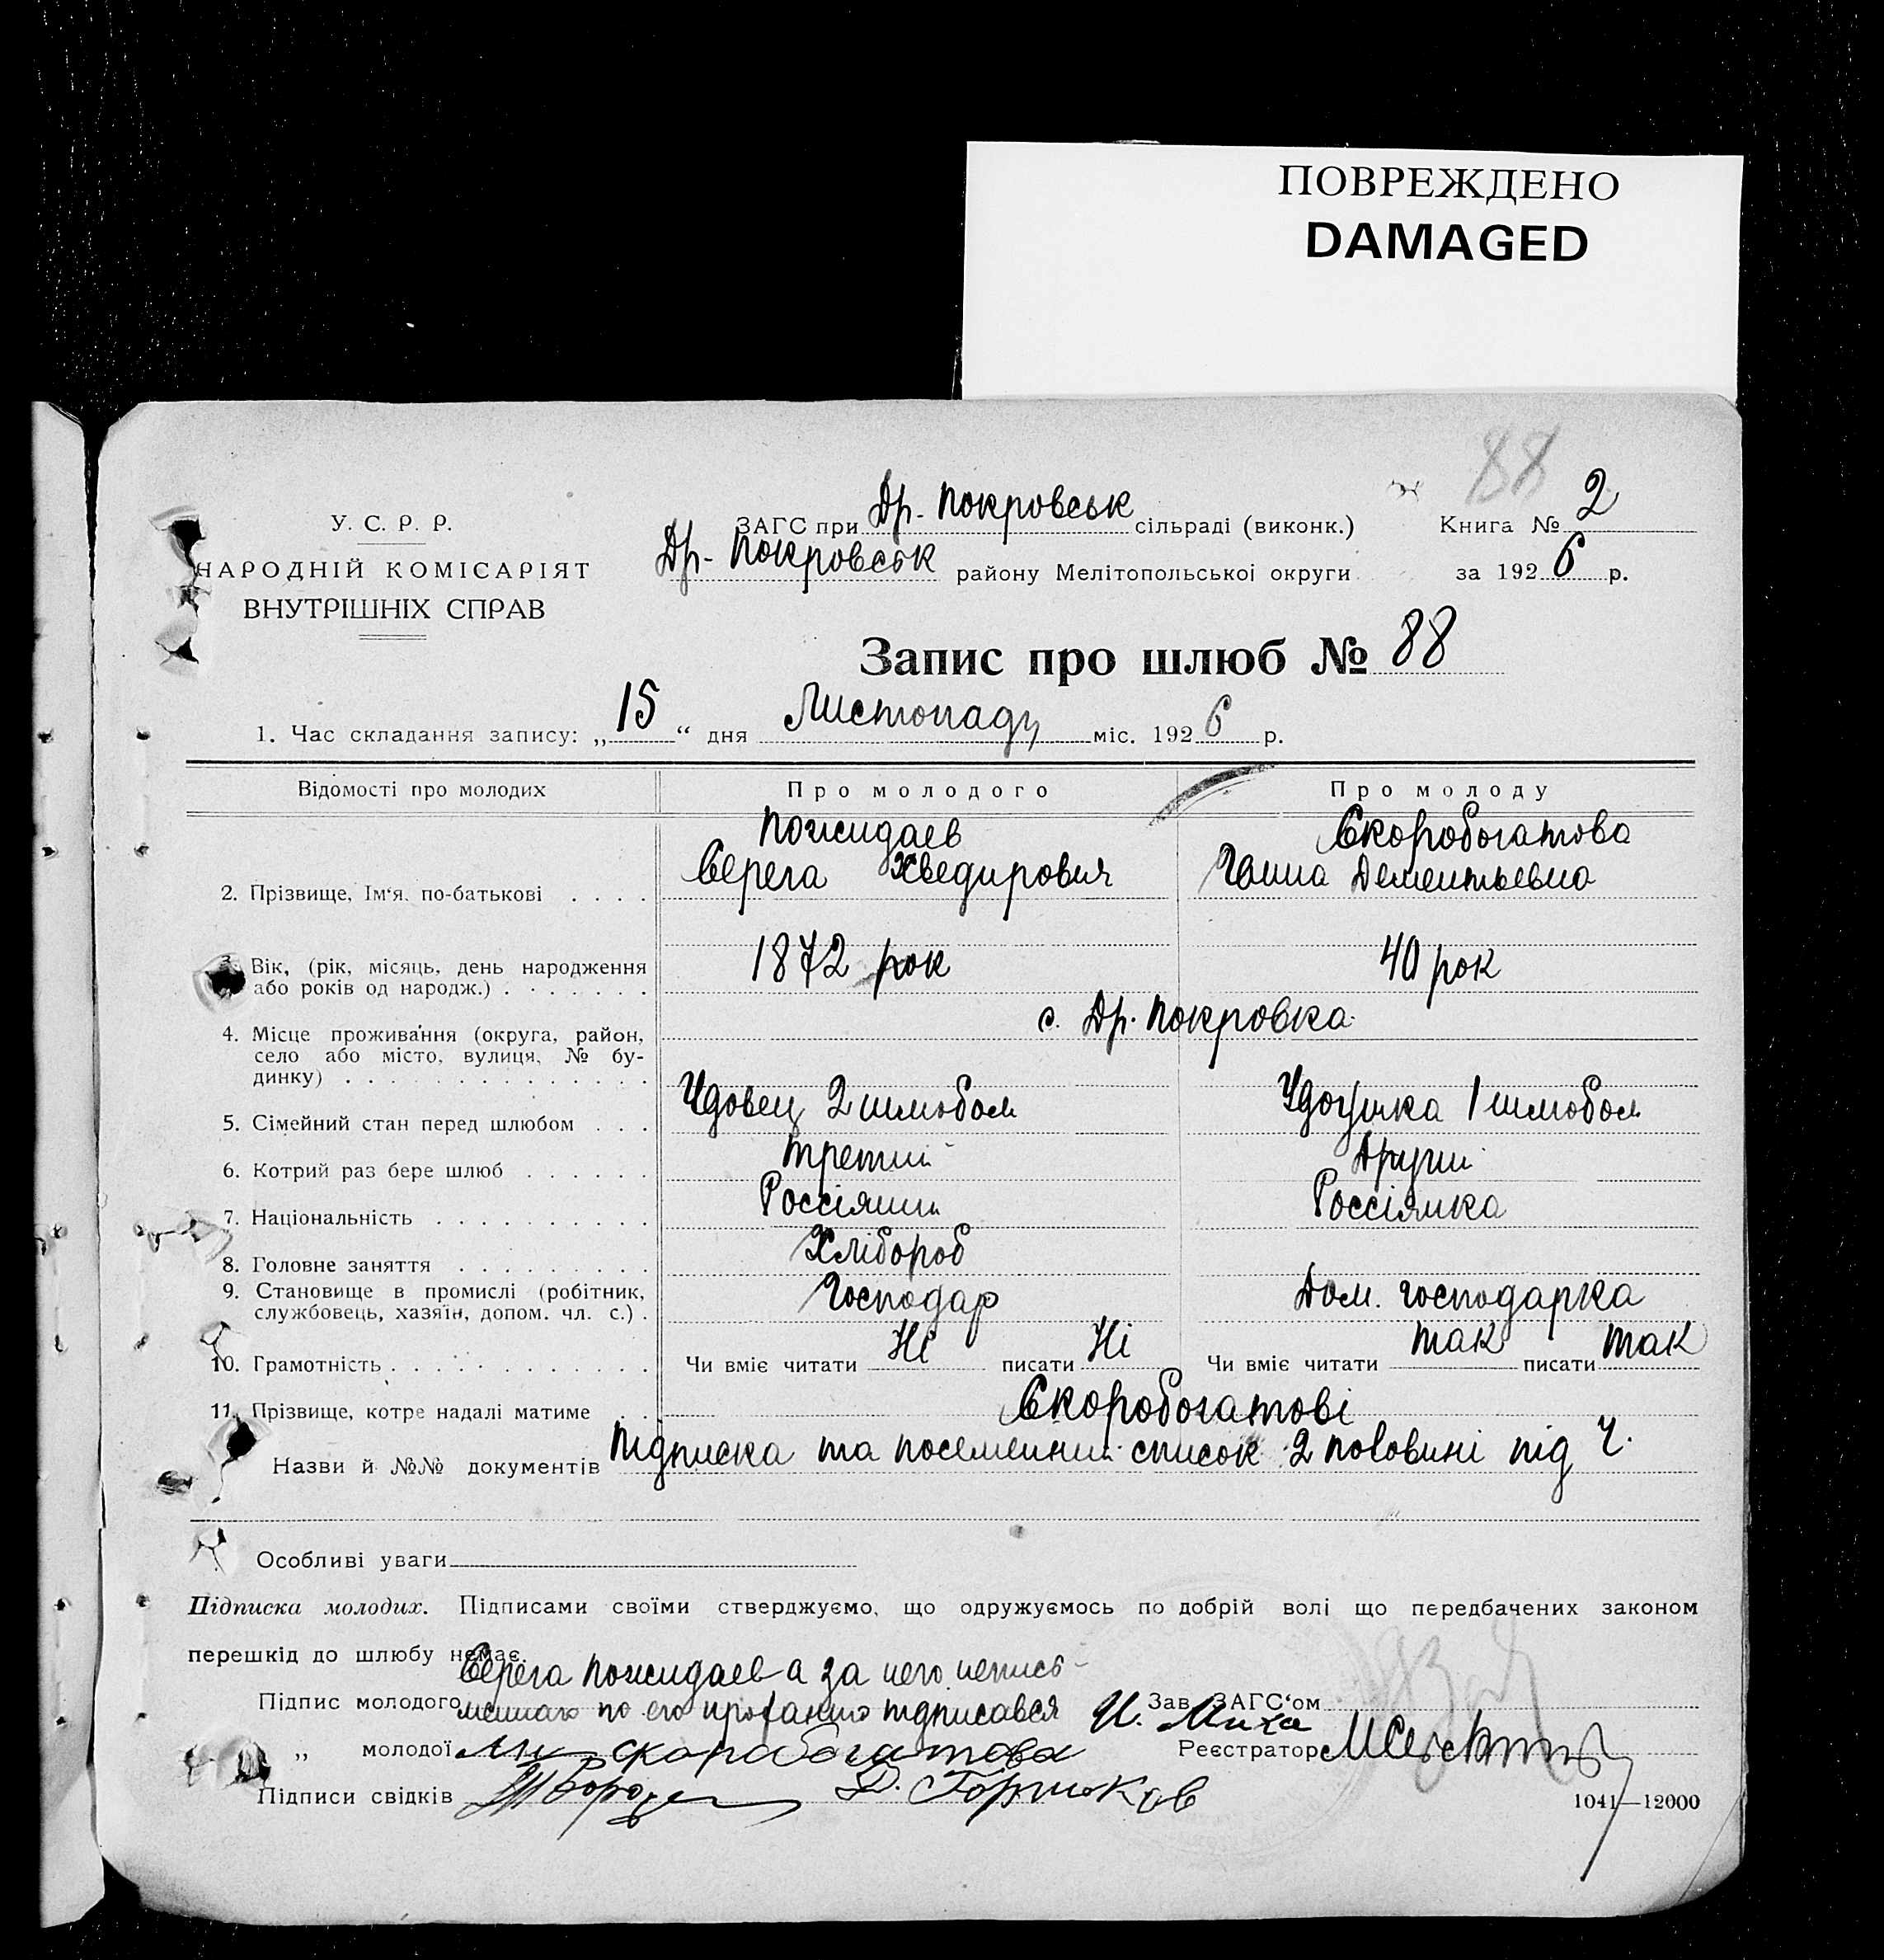 ПОВРЕЖДЕНО
DAMAGED
88
У. С. Р. Р.
НАРОДНІЙ КОМІСАРІЯТ
ВНУТРІШНІХ СПРАВ
ЗАГС при Др. Покровськ сільраді (виконк.) Книга № 2
Др- Покровськ району Мелітопольської округи за 1926 р.
Запис про шлюб № 88
1. Час складання запису: „15“ дня Листопаду міс. 1926 р.
Відомості про молодих Про молодого Про молоду
Пожидаев Скоробогатова
2. Прізвище, Ім'я, по-батькові . . . . Серега Хведирович Ганна Дементьевна
3. Вік, (рік, місяць, день народження 1872 рок 40 рок
або років од народж.) . . . . . . .
с. Др. Покровка
4. Місце проживання (округа, район,
село або місто, вулиця, № бу-
динку) . . . . . . . . . . . . . .
5. Сімейний стан перед шлюбом . . . Удовец 2 шлюбом Удовушка 1 шлюбом
6. Котрий раз бере шлюб . . . . . . третий Други
7. Національність . . . . . . . . . . Россіянин Россіянка
8. Головне заняття . . . . . . . . . Хлібороб
9. Становище в промислі (робітник, Господар Дом. господарка
службовець, хазяїн, допом. чл. с.) .
10. Грамотність . . . . . . . . . . . . Чи вміє читати Ні писати Ні Чи вміє читати так писати так
11. Прізвище, котре надалі матиме . . Скоробогатові
Назви й №№ документів Підписка та посемейний список 2 половині під Ч.
Особливі уваги
Підписка молодих. Підписами своїми стверджуємо, що одружуємось по добрій волі що передбачених законом
перешкід до шлюбу немає.
Серега Пожидаев а за него непись-
Підпис молодого по его підписався Зав. ЗАГС'ом
„ молодої скоробогатова Реєстратор
Підписи свідків Д. Горшков
1041—12000